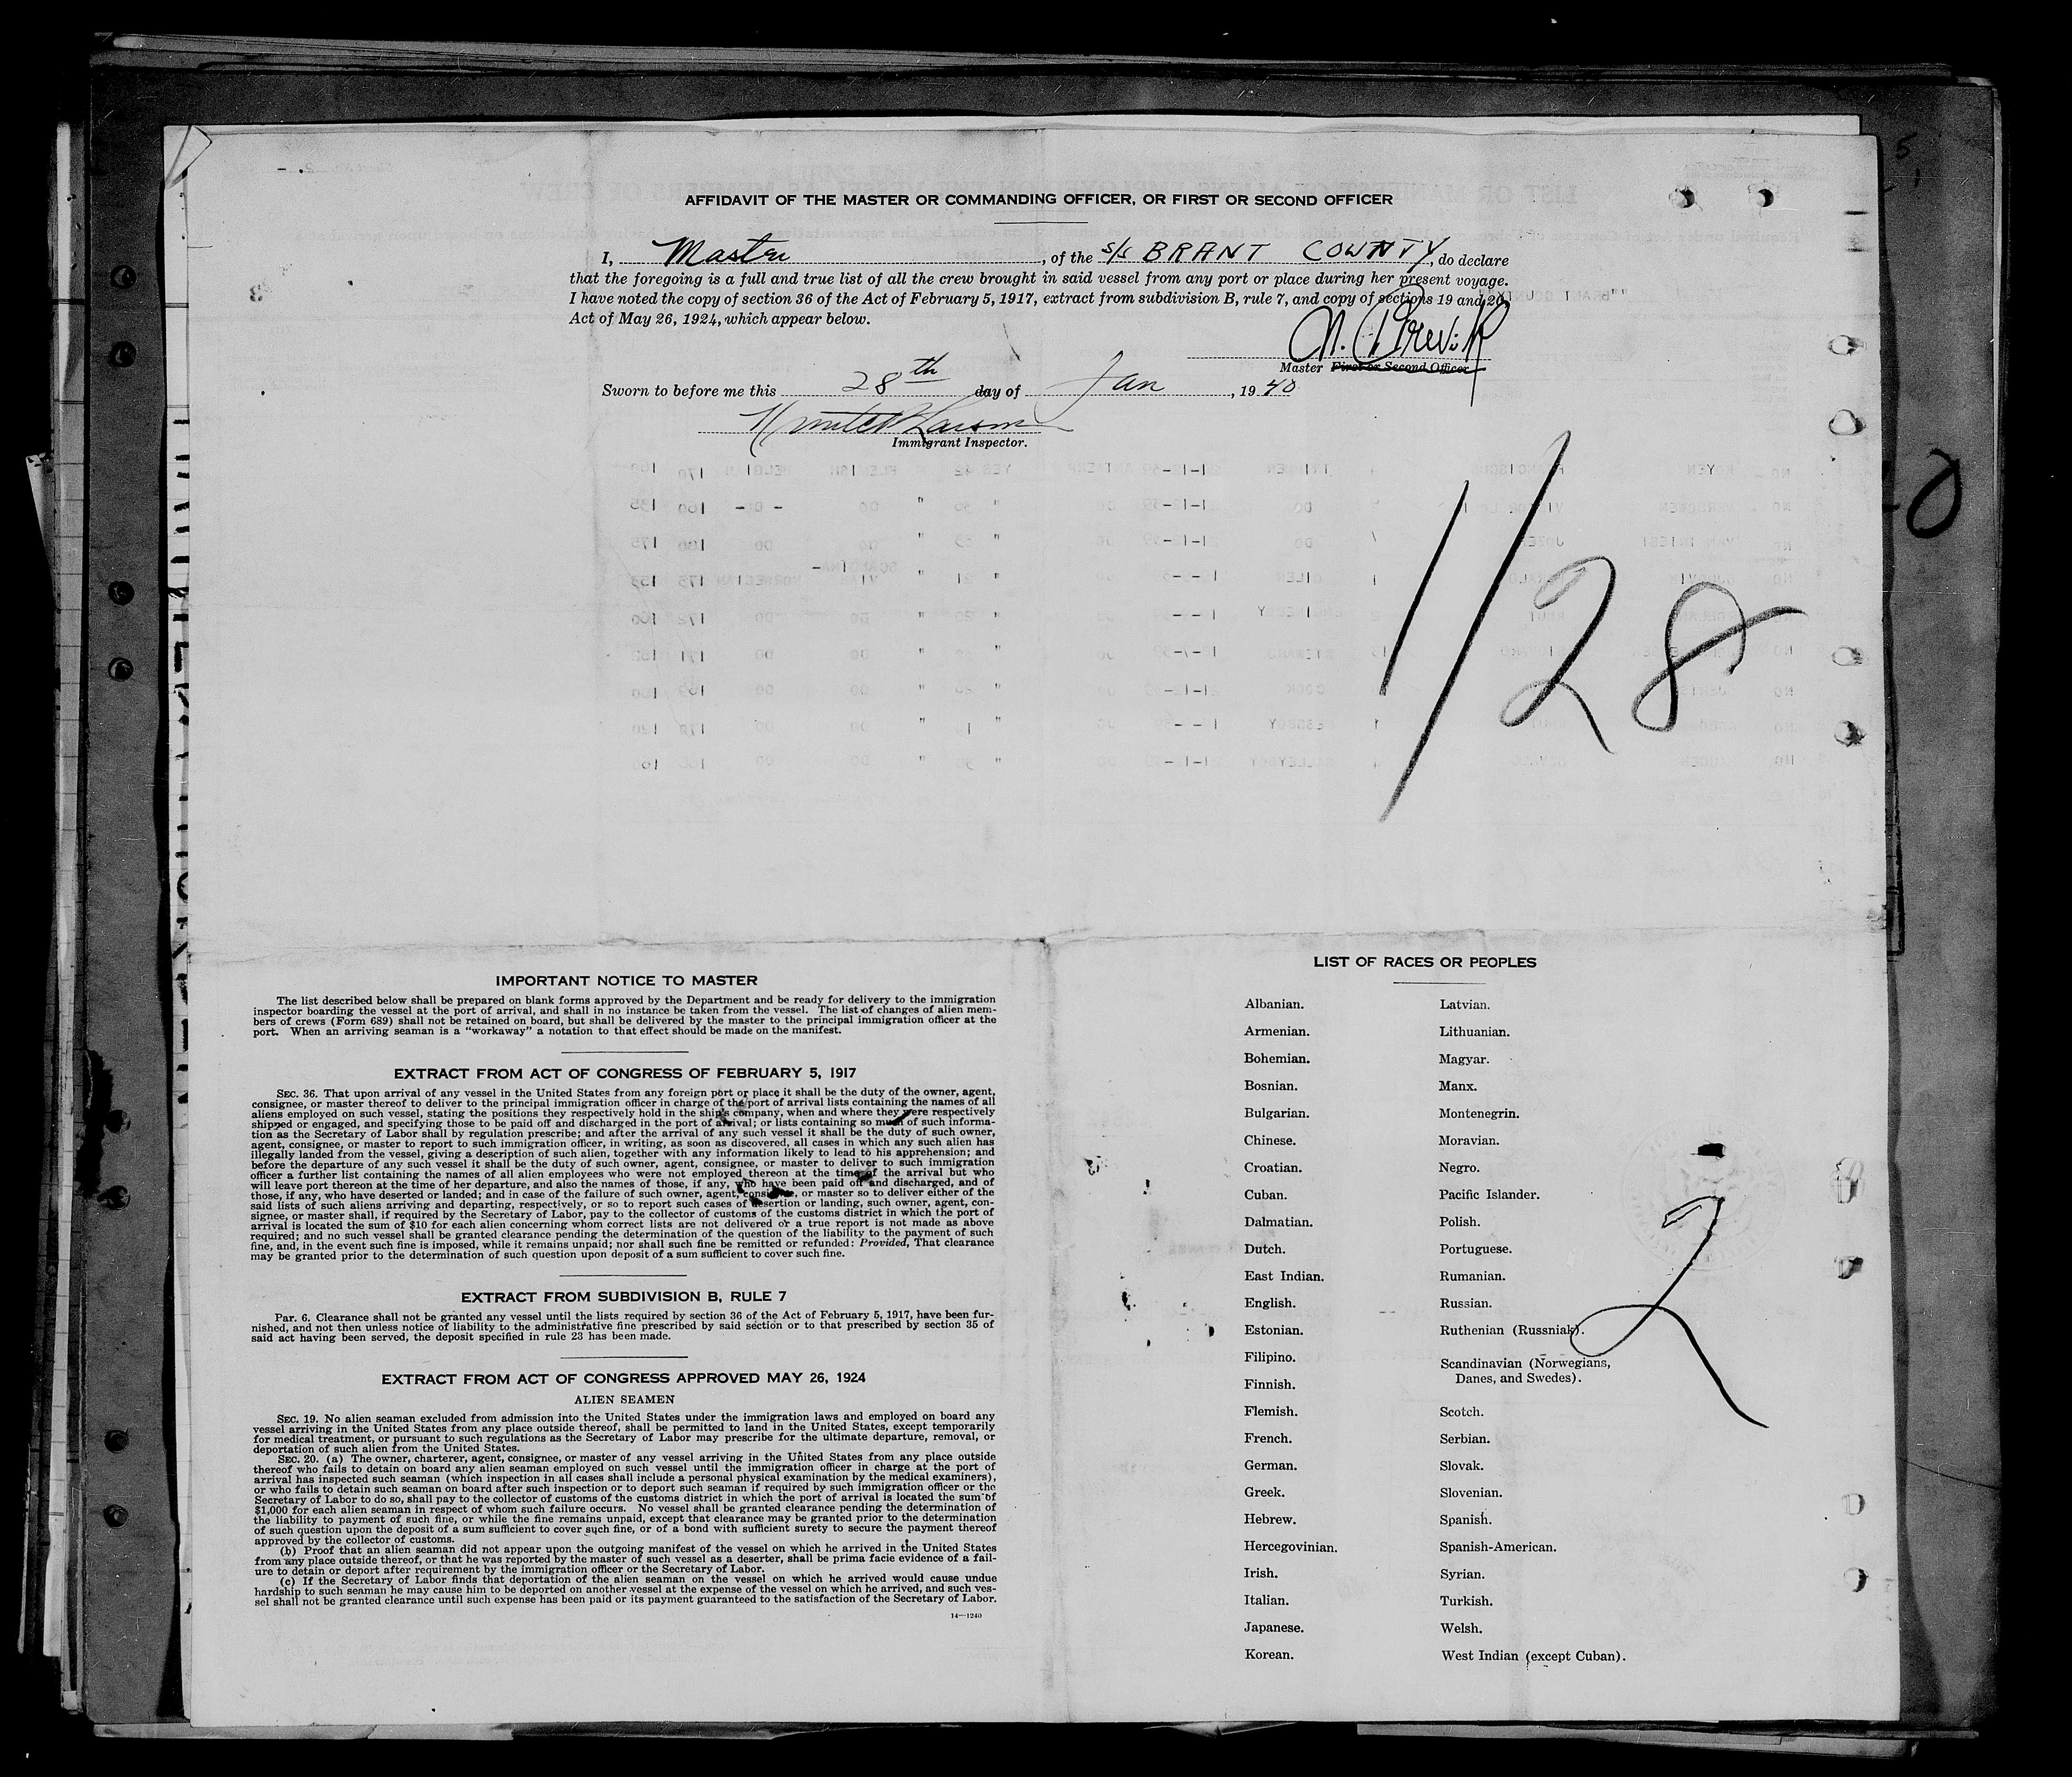 AFFIDAVIT OF THE MASTER OR COMMANDING OFFICER, OR FIRST OR SECOND OFFICER
I, Master, of the s/s BRANT COUNTY, do declare
that the foregoing is a full and true list of all the crew brought in said vessel from any port or place during her present voyage.
I have noted the copy of section 36 of the Act of February 5, 1917, extract from subdivision B, rule 7, and copy of sections 19 and 20,
Act of May 26, 1924, which appear below.
Master First or Second Officer
Sworn to before me this 28th day of Jan, 1940
Immigrant Inspector.
1/28
IMPORTANT NOTICE TO MASTER
The list described below shall be prepared on blank forms approved by the Department and be ready for delivery to the immigration
inspector boarding the vessel at the port of arrival, and shall in no instance be taken from the vessel. The list of changes of alien mem-
bers of crews (Form 689) shall not be retained on board, but shall be delivered by the master to the principal immigration officer at the
port. When an arriving seaman is a "workaway" a notation to that effect should be made on the manifest.
EXTRACT FROM ACT OF CONGRESS OF FEBRUARY 5, 1917
SEC. 36. That upon arrival of any vessel in the United States from any foreign port or place it shall be the duty of the owner, agent,
consignee, or master thereof to deliver to the principal immigration officer in charge of the port of arrival lists containing the names of all
aliens employed on such vessel, stating the positions they respectively hold in the ship's company, when and where they were respectively
shipped or engaged, and specifying those to be paid off and discharged in the port of arrival; or lists containing so much of such informa-
tion as the Secretary of Labor shall by regulation prescribe; and after the arrival of any such vessel it shall be the duty of such owner,
agent, consignee, or master to report to such immigration officer, in writing, as soon as discovered, all cases in which any such alien has
illegally landed from the vessel, giving a description of such alien, together with any information likely to lead to his apprehension; and
before the departure of any such vessel it shall be the duty of such owner, agent, consignee, or master to deliver to such immigration
officer a further list containing the names of all alien employees who were not employed thereon at the time of the arrival but who
will leave port thereon at the time of her departure, and also the names of those, if any, who have been paid off and discharged, and of
those, if any, who have deserted or landed; and in case of the failure of such owner, agent, consignee, or master so to deliver either of the
said lists of such aliens arriving and departing, respectively, or so to report such cases of desertion or landing, such owner, agent, con-
signee, or master shall, if required by the Secretary of Labor, pay to the collector of customs of the customs district in which the port of
arrival is located the sum of $10 for each alien concerning whom correct lists are not delivered or a true report is not made as above
required; and no such vessel shall be granted clearance pending the determination of the question of the liability to the payment of such
fine, and, in the event such fine is imposed, while it remains unpaid; nor shall such fine be remitted or refunded: Provided, That clearance
may be granted prior to the determination of such question upon deposit of a sum sufficient to cover such fine.
EXTRACT FROM SUBDIVISION B, RULE 7
Par. 6. Clearance shall not be granted any vessel until the lists required by section 36 of the Act of February 5, 1917, have been fur-
nished, and not then unless notice of liability to the administrative fine prescribed by said section or to that prescribed by section 35 of
said act having been served, the deposit specified in rule 23 has been made.
EXTRACT FROM ACT OF CONGRESS APPROVED MAY 26, 1924
ALIEN SEAMEN
SEC. 19. No alien seaman excluded from admission into the United States under the immigration laws and employed on board any
vessel arriving in the United States from any place outside thereof, shall be permitted to land in the United States, except temporarily
for medical treatment, or pursuant to such regulations as the Secretary of Labor may prescribe for the ultimate departure, removal, or
deportation of such alien from the United States.
SEC. 20. (a) The owner, charterer, agent, consignee, or master of any vessel arriving in the United States from any place outside
thereof who fails to detain on board any alien seaman employed on such vessel until the immigration officer in charge at the port of
arrival has inspected such seaman (which inspection in all cases shall include a personal physical examination by the medical examiners),
or who fails to detain such seaman on board after such inspection or to deport such seaman if required by such immigration officer or the
Secretary of Labor to do so, shall pay to the collector of customs of the customs district in which the port of arrival is located the sum of
$1,000 for each alien seaman in respect of whom such failure occurs. No vessel shall be granted clearance pending the determination of
the liability to payment of such fine, or while the fine remains unpaid, except that clearance may be granted prior to the determination
of such question upon the deposit of a sum sufficient to cover such fine, or of a bond with sufficient surety to secure the payment thereof
approved by the collector of customs.
(b) Proof that an alien seaman did not appear upon the outgoing manifest of the vessel on which he arrived in the United States
from any place outside thereof, or that he was reported by the master of such vessel as a deserter, shall be prima facie evidence of a fail-
ure to detain or deport after requirement by the immigration officer or the Secretary of Labor.
(c) If the Secretary of Labor finds that deportation of the alien seaman on the vessel on which he arrived would cause undue
hardship to such seaman he may cause him to be deported on another vessel at the expense of the vessel on which he arrived, and such ves-
sel shall not be granted clearance until such expense has been paid or its payment guaranteed to the satisfaction of the Secretary of Labor.
14—1240
LIST OF RACES OR PEOPLES
Albanian.
Armenian.
Bohemian.
Bosnian.
Bulgarian.
Chinese.
Croatian.
Cuban.
Dalmatian.
Dutch.
East Indian.
English.
Estonian.
Filipino.
Finnish.
Flemish.
French.
German.
Greek.
Hebrew.
Hercegovinian.
Irish.
Italian.
Japanese.
Korean.
Latvian.
Lithuanian.
Magyar.
Manx.
Montenegrin.
Moravian.
Negro.
Pacific Islander.
Polish.
Portuguese.
Rumanian.
Russian.
Ruthenian (Russniak).
Scandinavian (Norwegians,
Danes, and Swedes).
Scotch.
Serbian.
Slovak.
Slovenian.
Spanish.
Spanish-American.
Syrian.
Turkish.
Welsh.
West Indian (except Cuban).
2